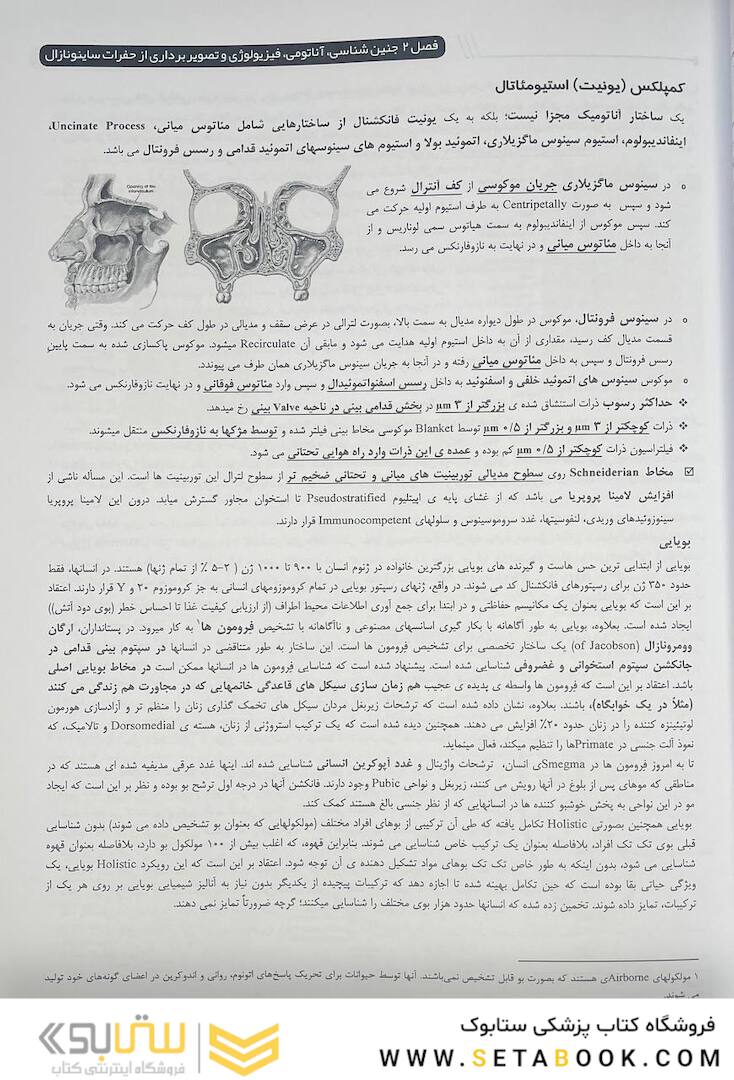 فصل ۲ جنین شناسی، آناتومی، فیزیولوژی و تصویر برداری از حفرات ساینونازال
کمپلکس (یونیت) استیومئاتال
یک ساختار آناتومیک مجزا نیست؛ بلکه به یک یونیت فانکشنال از ساختارهایی شامل مئاتوس میانی، Uncinate Process،
اینفاندیبولوم، استیوم سینوس ماگزیلاری، اتموئید بولا و استیوم های سینوسهای اتموئید قدامی و رسس فرونتال می باشد.
Opening of the
infundibulum
o در سینوس ماگزیلاری جریان موکوسی از کف آنترال شروع می
شود و سپس به صورت Centripetally به طرف استیوم اولیه حرکت می
کند. سپس موکوس از اینفاندیبولوم به سمت هیاتوس سمی لوناریس و از
آنجا به داخل مئاتوس میانی و در نهایت به نازوفارنکس می رسد.
o در سینوس فرونتال، موکوس در طول دیواره مدیال به سمت بالا، بصورت لترالی در عرض سقف و مدیالی در طول کف حرکت می کند. وقتی جریان به
قسمت مدیال کف رسید، مقداری از آن به داخل استیوم اولیه هدایت می شود و مابقی آن Recirculate میشود. موکوس پاکسازی شده به سمت پایین
رسس فرونتال و سپس به داخل مئاتوس میانی رفته و در آنجا به جریان سینوس ماگزیلاری همان طرف می پیوندد.
o موکوس سینوس های اتموئید خلفی و اسفنوئید به داخل رسس اسفنواتموئیدال و سپس وارد مئاتوس فوقانی و در نهایت نازوفارنکس می شود.
❖ حداکثر رسوب ذرات استنشاق شده ی بزرگتر از ۳ µm در بخش قدامی بینی در ناحیه Valve بینی رخ میدهد.
❖ ذرات کوچکتر از ۳ µm و بزرگتر از ۰/۵ µm توسط Blanket موکوسی مخاط بینی فیلتر شده و توسط مژکها به نازوفارنکس منتقل میشوند.
❖ فیلتراسیون ذرات کوچکتر از ۰/۵ µm کم بوده و عمده ی این ذرات وارد راه هوایی تحتانی می شود.
☑ مخاط Schneiderian روی سطوح مدیالی توربینیت های میانی و تحتانی ضخیم تر از سطوح لترال این توربینیت ها است. این مسأله ناشی از
افزایش لامینا پروپریا می باشد که از غشای پایه ی اپیتلیوم Pseudostratified تا استخوان مجاور گسترش میابد. درون این لامینا پروپریا
سینوزوئیدهای وریدی، لنفوسیتها، غدد سروموسینوس و سلولهای Immunocompetent قرار دارند.
بویایی
بویایی از ابتدایی ترین حس هاست و گیرنده های بویایی بزرگترین خانواده در ژنوم انسان با ۹۰۰ تا ۱۰۰۰ ژن ( ۲-۵ ٪ از تمام ژنها) هستند. در انسانها، فقط
حدود ۳۵۰ ژن برای رسپتورهای فانکشنال کد می شوند. در واقع، ژنهای رسپتور بویایی در تمام کروموزومهای انسانی به جز کروموزوم ۲۰ و Y قرار دارند. اعتقاد
بر این است که بویایی بعنوان یک مکانیسم حفاظتی و در ابتدا برای جمع آوری اطلاعات محیط اطراف (از ارزیابی کیفیت غذا تا احساس خطر (بوی دود آتش))
ایجاد شده است. بعلاوه، بویایی به طور آگاهانه با بکار گیری اسانسهای مصنوعی و ناآگاهانه با تشخیص فرومون ها۱ به کار میرود. در پستانداران، ارگان
وومرونازال (of Jacobson) یک ساختار تخصصی برای تشخیص فرومون ها است. این ساختار به طور متناقضی در انسانها در سپتوم بینی قدامی در
جانکشن سپتوم استخوانی و غضروفی شناسایی شده است. پیشنهاد شده است که شناسایی فرومون ها در انسانها ممکن است در مخاط بویایی اصلی
باشد. اعتقاد بر این است که فرومون ها واسطه ی پدیده ی عجیب هم زمان سازی سیکل های قاعدگی خانمهایی که در مجاورت هم زندگی می کنند
(مثلاً در یک خوابگاه)، باشند. بعلاوه، نشان داده شده است که ترشحات زیربغل مردان سیکل های تخمک گذاری زنان را منظم تر و آزادسازی هورمون
لوتینیزه کننده را در زنان حدود ۲۰٪ افزایش می دهند. همچنین دیده شده است که یک ترکیب استروژنی از زنان، هسته ی Dorsomedial و تالامیک، که
نعوذ آلت جنسی در Primateها را تنظیم میکند، فعال مینماید.
تا به امروز فرومون ها در Smegmaی انسان، ترشحات واژینال و غدد آپوکرین انسانی شناسایی شده اند. اینها غدد عرقی مدیفیه شده ای هستند که در
مناطقی که موهای پس از بلوغ در آنها رویش می کنند، زیربغل و نواحی Pubic وجود دارند. فانکشن آنها در درجه اول ترشح بو بوده و نظر بر این است که ایجاد
مو در این نواحی به پخش خوشبو کننده ها در انسانهایی که از نظر جنسی بالغ هستند کمک کند.
بویایی همچنین بصورتی Holistic تکامل یافته که طی آن ترکیبی از بوهای افراد مختلف (مولکولهایی که بعنوان بو تشخیص داده می شوند) بدون شناسایی
قبلی بوی تک تک افراد، بلافاصله بعنوان یک ترکیب خاص شناسایی می شوند. بنابراین قهوه، که اغلب بیش از ۱۰۰ مولکول بو دارد، بلافاصله بعنوان قهوه
شناسایی می شود، بدون اینکه به طور خاص تک تک بوهای مواد تشکیل دهنده ی آن توجه شود. اعتقاد بر این است که این رویکرد Holistic بویایی، یک
ویژگی حیاتی بقا بوده است که حین تکامل بهینه شده تا اجازه دهد که ترکیبات پیچیده از یکدیگر بدون نیاز به آنالیز شیمیایی بویایی بر روی هر یک از
ترکیبات، تمایز داده شوند. تخمین زده شده که انسانها حدود هزار بوی مختلف را شناسایی میکنند؛ گرچه ضرورتاً تمایز نمی دهند.
۱ مولکولهای Airborneی هستند که بصورت بو قابل تشخیص نمی‌باشند. آنها توسط حیوانات برای تحریک پاسخ‌های اتونوم، روانی و اندوکرین در اعضای گونه‌های خود تولید
می شوند.
فروشگاه کتاب پزشکی ستابوک
WWW.SETABOOK.COM
ستابوک
فروشگاه اینترنتی کتاب